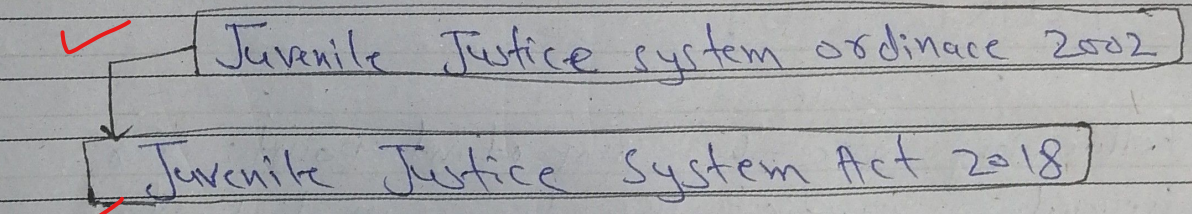 Juvenile Justice system ordinace 2002
Juvenile Justice System Act 2018